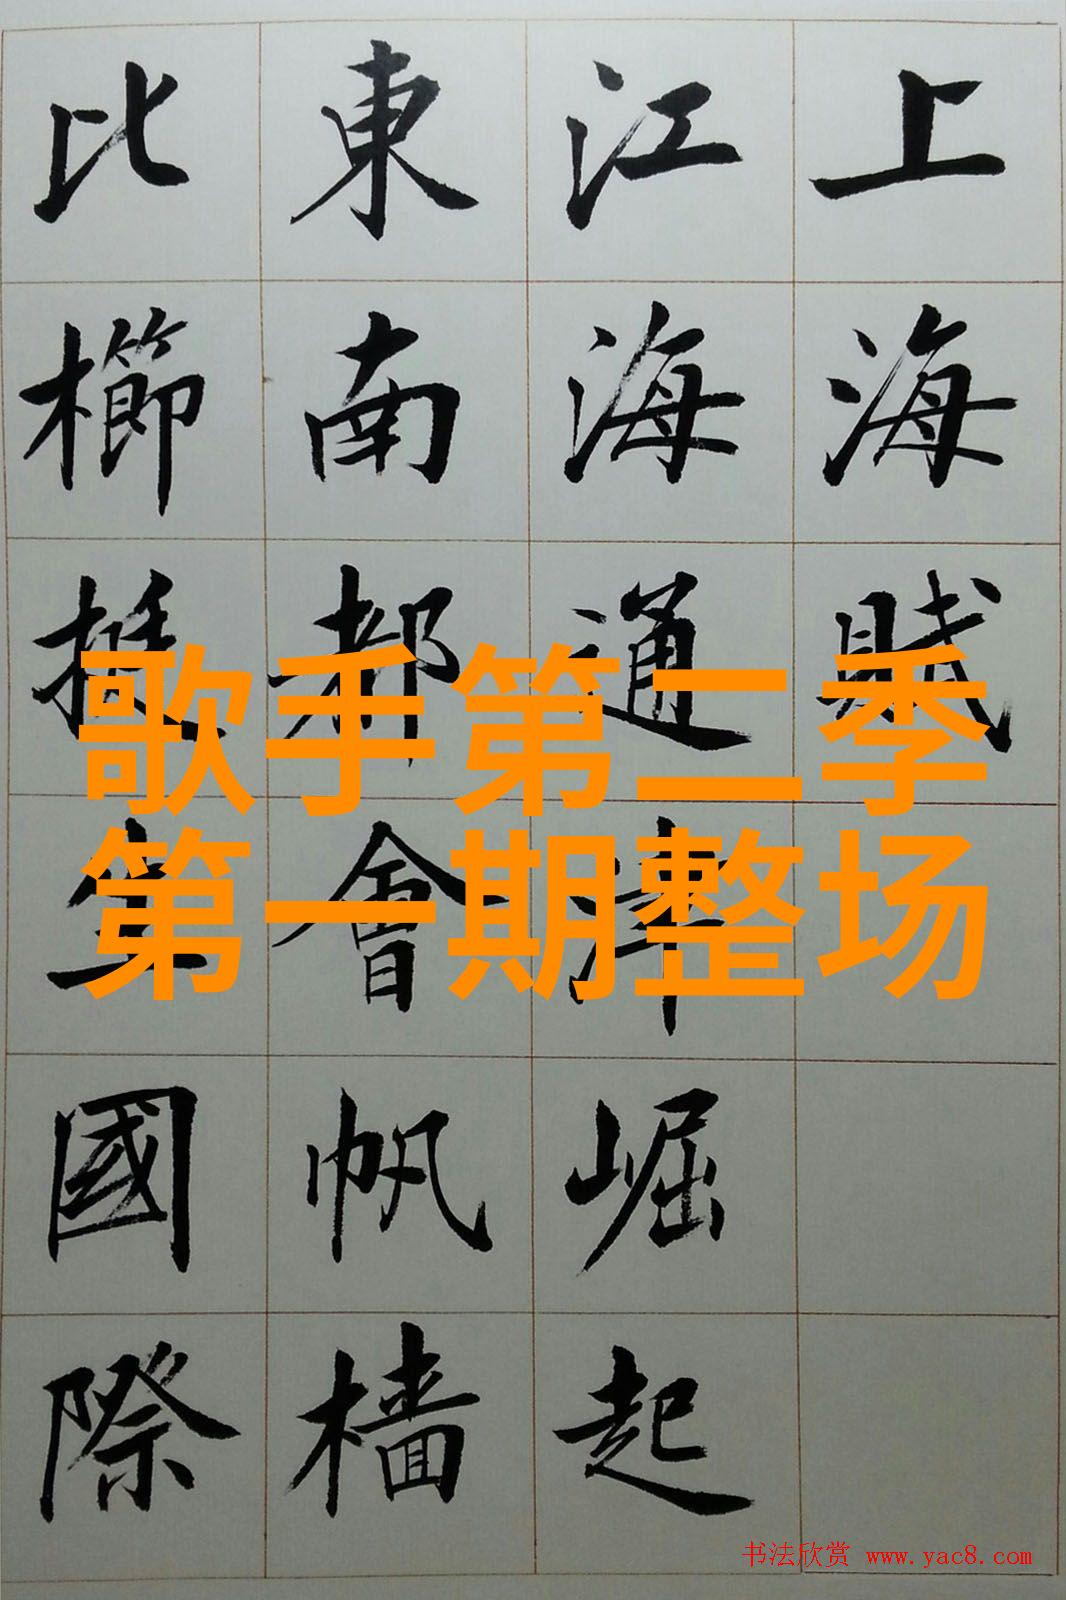 上海賦
江海通津崛起
東南都會帆檣
比櫛挺國際
歌手第二季
第一期整场
书法欣赏 www.yac8.com